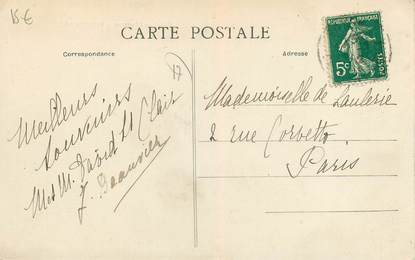 15 €
CARTE POSTALE
Correspondance
Adresse
RÉPUBLIQUE FRANÇAISE
5c
POSTES
17
Meilleurs
Souvenirs
Mr et M. David St Clair
J. Beauvier
Mademoiselle de Laulerie
2 rue Corvetto
Paris